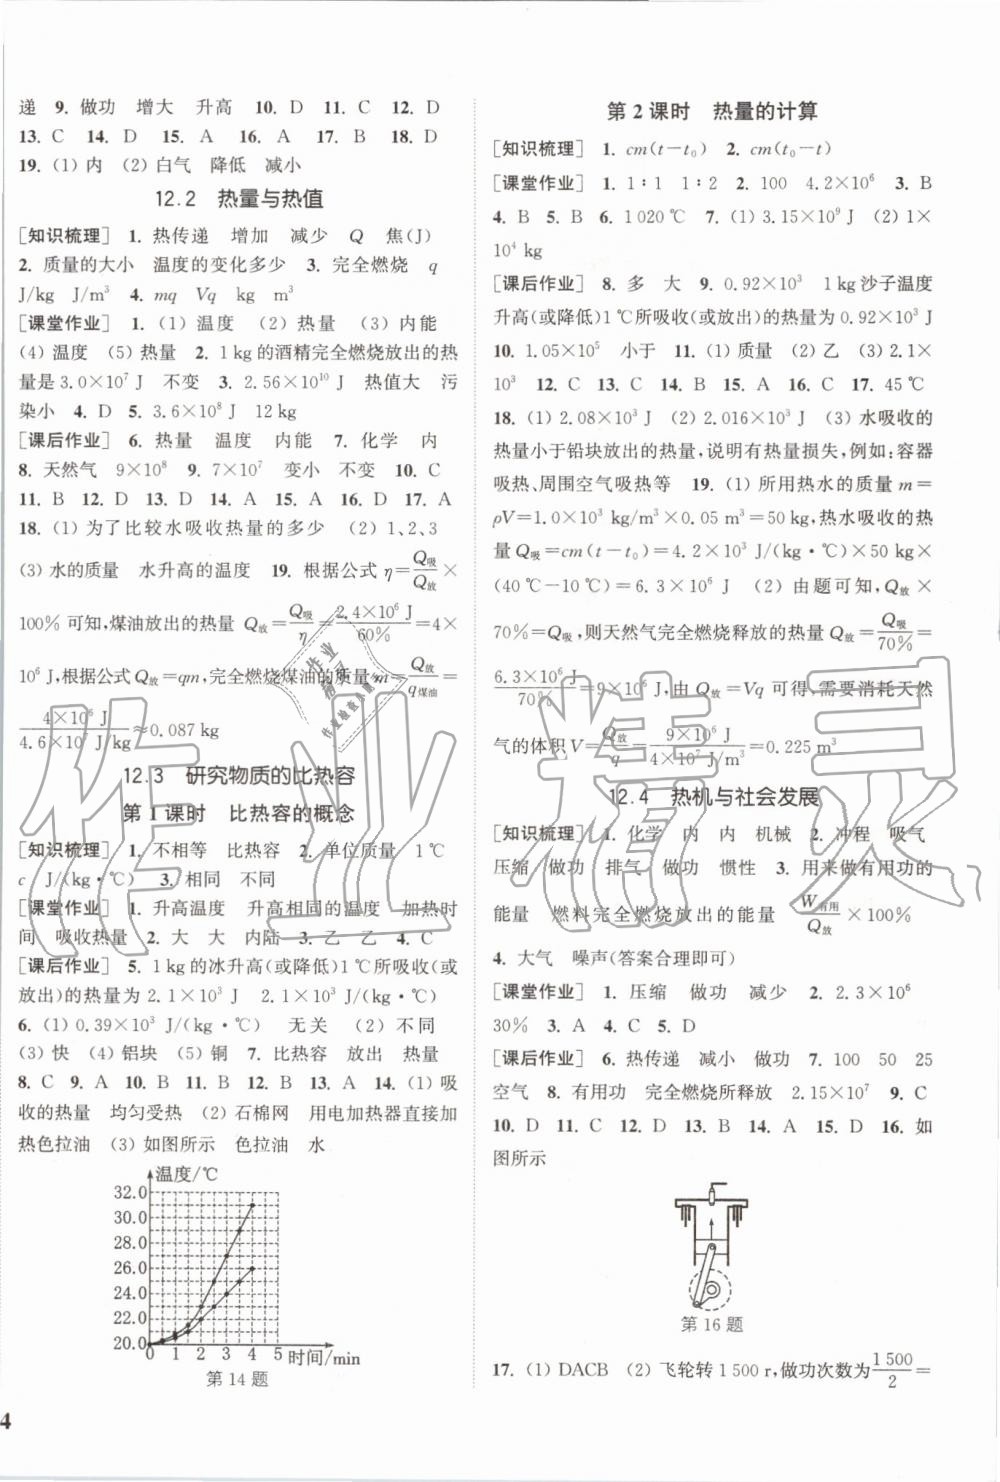 递 9. 做功 增大 升高 10. D 11. C 12. D
13. C 14. D 15. A 16. A 17. B 18. D
19. (1) 内 (2) 白气 降低 减小
12.2 热量与热值
[知识梳理] 1. 热传递 增加 减少 Q 焦(J)
2. 质量的大小 温度的变化多少 3. 完全燃烧 q
J/kg J/m³ 4. mq Vq kg m³
[课堂作业] 1. (1) 温度 (2) 热量 (3) 内能
(4) 温度 (5) 热量 2. 1 kg的酒精完全燃烧放出的热
量是3.0×10⁷ J 不变 3. 2.56×10¹⁰ J 热值大 污
染小 4. D 5. 3.6×10⁸ J 12 kg
[课后作业] 6. 热量 温度 内能 7. 化学 内
8. 天然气 9×10⁸ 9. 7×10⁷ 变小 不变 10. C
11. B 12. D 13. D 14. A 15. A 16. D 17. A
18. (1) 为了比较水吸收热量的多少 (2) 1、2、3
(3) 水的质量 水升高的温度 19. 根据公式 η=Q吸/Q放×
100%可知,煤油放出的热量 Q放=Q吸/η=2.4×10⁶ J/60%=4×
10⁶ J,根据公式Q放=qm,完全燃烧煤油的质量m=Q放/q煤油=
4×10⁶ J/4.6×10⁷ J/kg≈0.087 kg
12.3 研究物质的比热容
第1课时 比热容的概念
[知识梳理] 1. 不相等 比热容 2. 单位质量 1℃
c J/(kg·℃) 3. 相同 不同
[课堂作业] 1. 升高温度 升高相同的温度 加热时
间 吸收热量 2. 大 大 内陆 3. 乙 乙 4. C
[课后作业] 5. 1 kg的冰升高(或降低)1℃所吸收(或
放出)的热量为2.1×10³ J 2.1×10³ J/(kg·℃)
6. (1) 0.39×10³ J/(kg·℃) 无关 (2) 不同
(3) 快 (4) 铝块 (5) 铜 7. 比热容 放出 热量
8. C 9. A 10. B 11. D 12. B 13. A 14. (1) 吸
收的热量 均匀受热 (2) 石棉网 用电加热器直接加
热色拉油 (3) 如图所示 色拉油 水
温度/℃
32.0
30.0
28.0
26.0
24.0
22.0
20.0
0 1 2 3 4 5 时间/min
第14题
4
第2课时 热量的计算
[知识梳理] 1. cm(t-t₀) 2. cm(t₀-t)
[课堂作业] 1. 1∶1 1∶2 2. 100 4.2×10⁶ 3. B
4. B 5. B 6. 1 020 ℃ 7. (1) 3.15×10⁹ J (2) 1×
10⁴ kg
[课后作业] 8. 多 大 9. 0.92×10³ 1 kg沙子温度
升高(或降低)1℃所吸收(或放出)的热量为0.92×10³ J
10. 1.05×10⁵ 小于 11. (1) 质量 (2) 乙 (3) 2.1×
10³ 12. C 13. C 14. B 15. A 16. C 17. 45℃
18. (1) 2.08×10³ J (2) 2.016×10³ J (3) 水吸收的
热量小于铅块放出的热量,说明有热量损失,例如:容器
吸热、周围空气吸热等 19. (1) 所用热水的质量 m=
ρV=1.0×10³ kg/m³×0.05 m³=50 kg,热水吸收的热
量Q吸=cm(t-t₀)=4.2×10³ J/(kg·℃)×50 kg×
(40℃-10℃)=6.3×10⁶ J (2) 由题可知,Q放×
70%=Q吸,则天然气完全燃烧释放的热量 Q放=Q吸/70%=
6.3×10⁶ J/70%=9×10⁶ J,由 Q放=Vq 可得,需要消耗天然
气的体积V=Q放/q=9×10⁶ J/4×10⁷ J/m³=0.225 m³
12.4 热机与社会发展
[知识梳理] 1. 化学 内 内 机械 2. 冲程 吸气
压缩 做功 排气 做功 惯性 3. 用来做有用功的
能量 燃料完全燃烧放出的能量 W有用/Q放×100%
4. 大气 噪声(答案合理即可)
[课堂作业] 1. 压缩 做功 减少 2. 2.3×10⁶
30% 3. A 4. C 5. D
[课后作业] 6. 热传递 减小 做功 7. 100 50 25
空气 8. 有用功 完全燃烧所释放 2.15×10⁷ 9. C
10. D 11. C 12. D 13. B 14. A 15. D 16. 如
图所示
第16题
17. (1) DACB (2) 飞轮转1 500 r,做功次数为1 500/2=
作业精灵